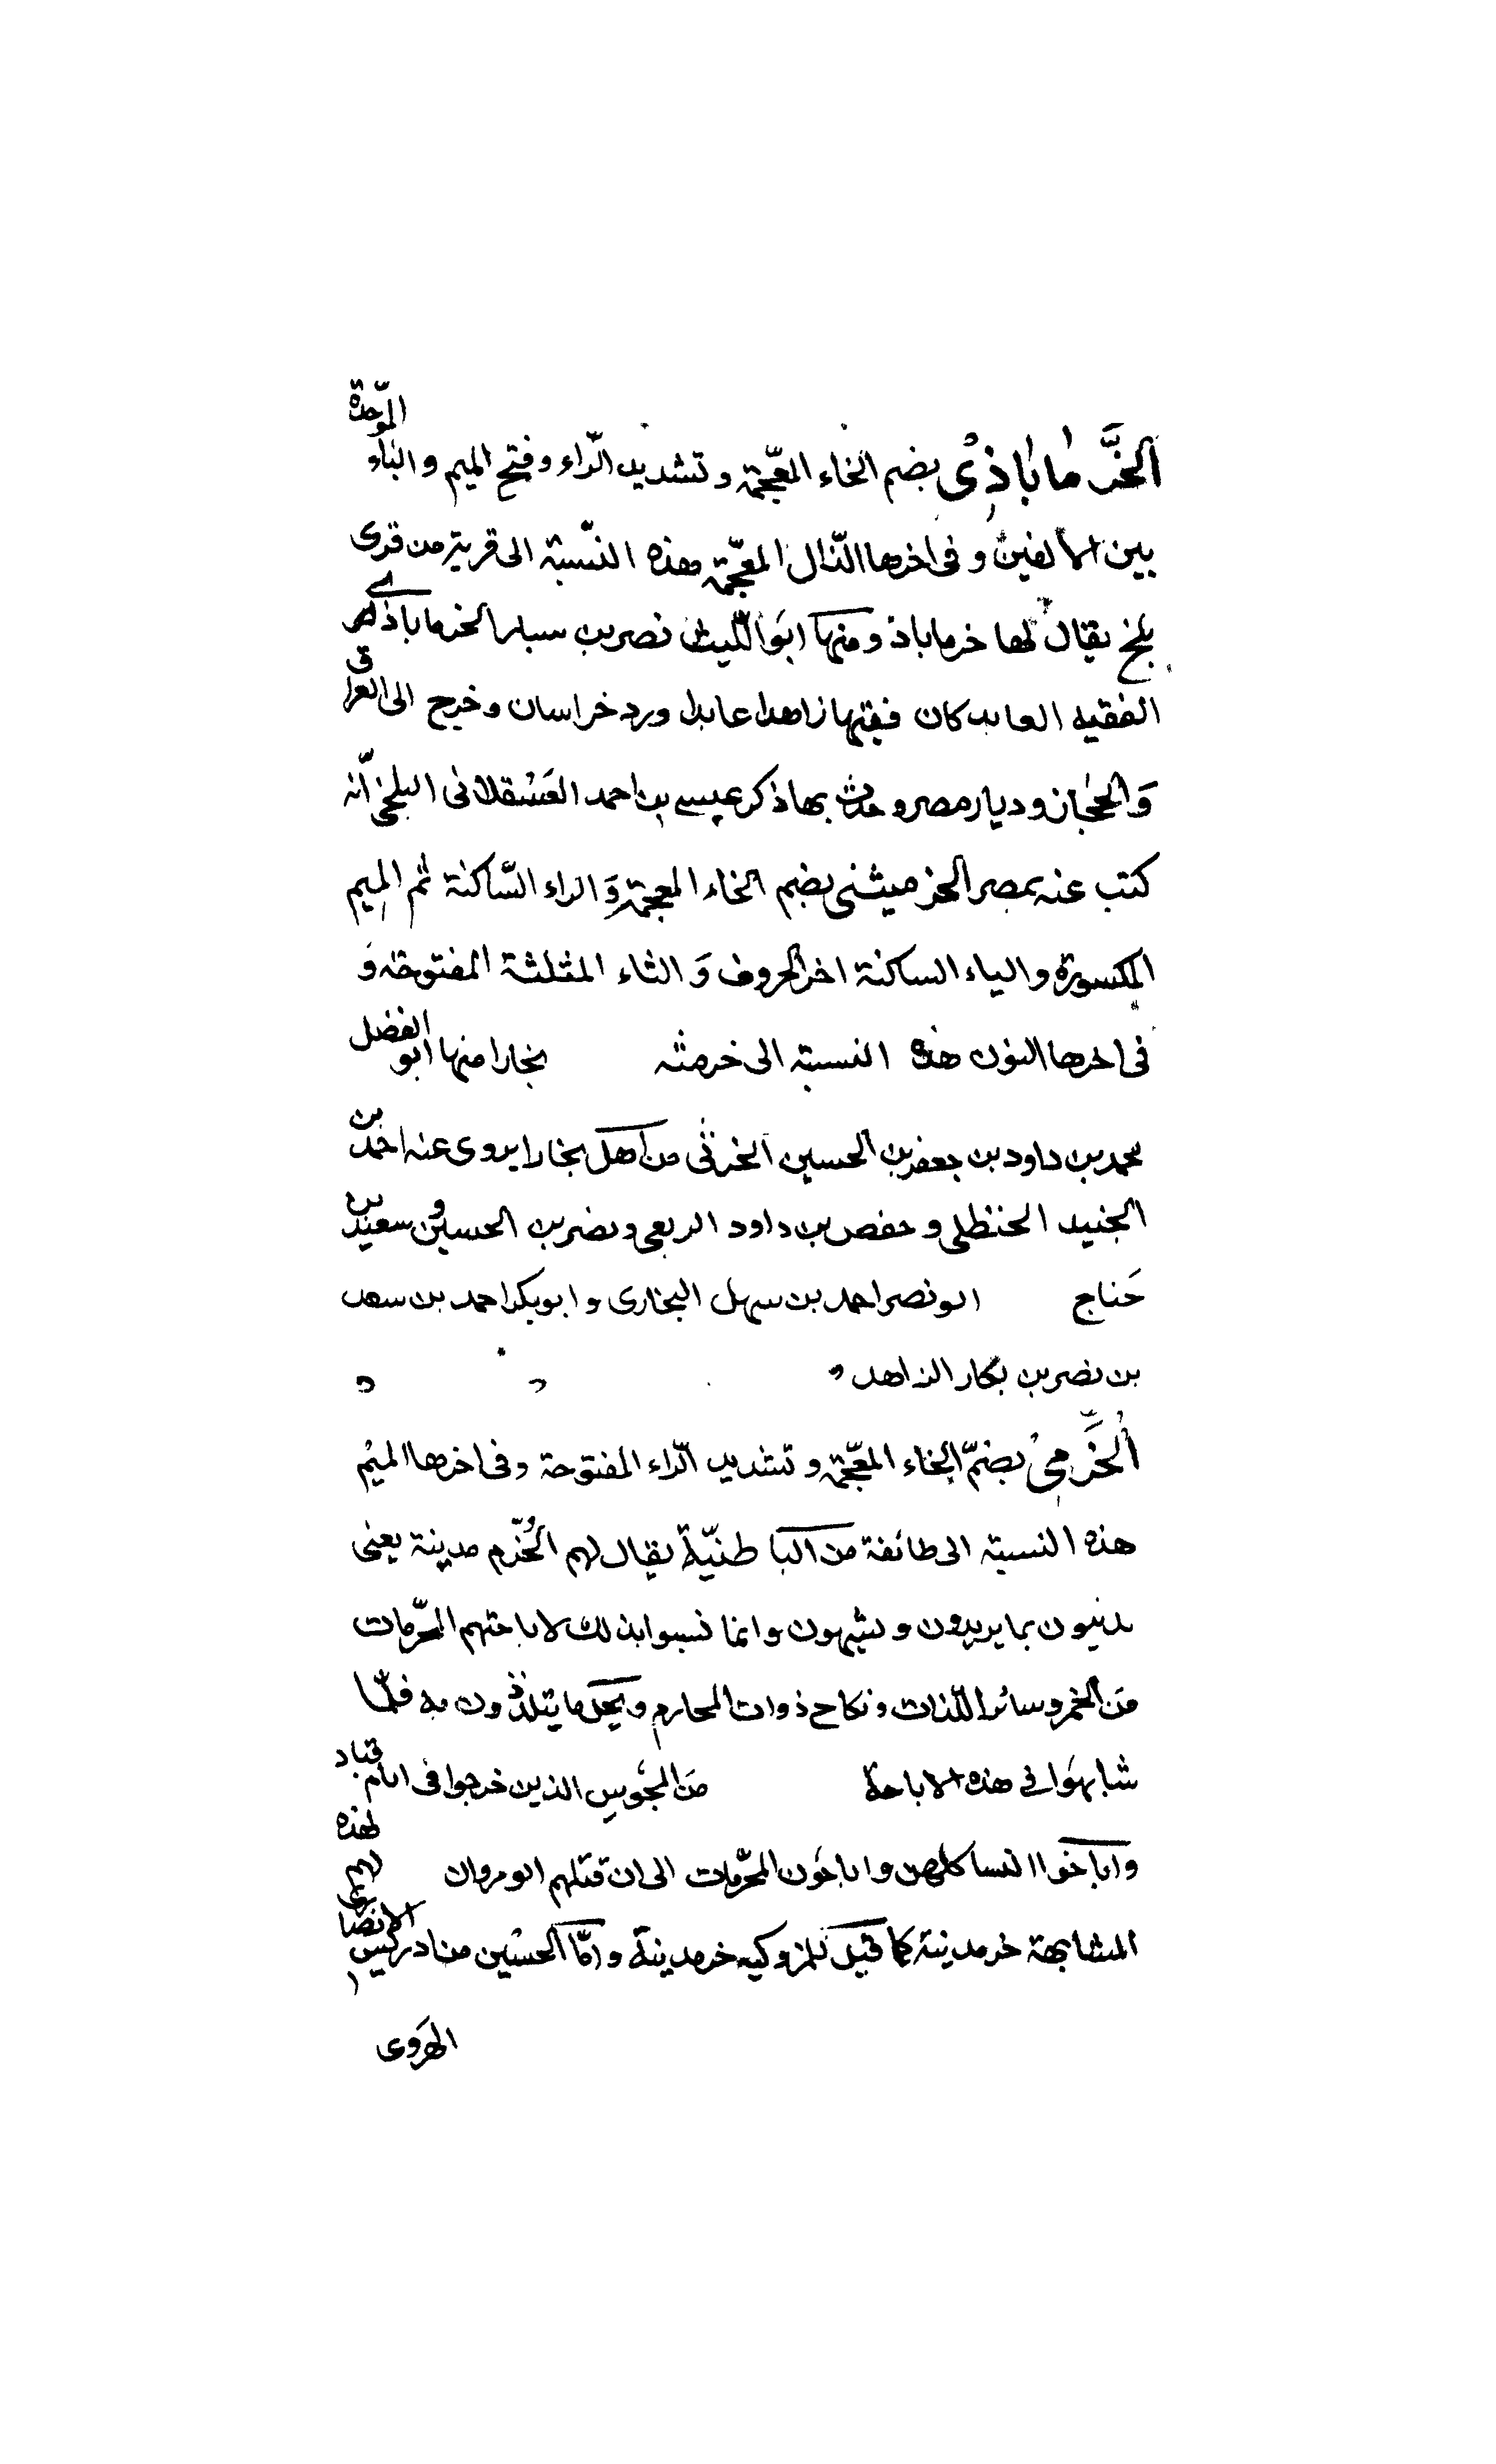 الخُرَّماباذى بضم الخاء المعجمة وتشديد الراء وفتح الميم والباء الموحدة
بين الالفين وفى اخرها الذال المعجمة هذه النسبة الى قرية من قرى
بلخ يقال لها خرماباذ ومنها ابو الليث نصر بن سيار الخرماباذى
الفقيه العابد كان فقيها زاهدا عابدا ورد خراسان وخرج الى العراق
والحجاز وديار مصر وحدث بها ذكر عيسى بن احمد العسقلانى البلخى انه
كتب عنه بمصر الخرميثنى بضم الخاء المعجمة والراء الساكنة ثم الميم
المكسورة والياء الساكنة اخر الحروف والثاء المثلثة المفتوحة و
فى اخرها النون هذه النسبة الى خرمثه بخارا منها ابو الفضل
محمد بن داود بن جعفر بن الحسين من اهل بخارا يروى عنه احمد بن
الجنيد الحنظلى و حفص بن داود الربعى ونصر بن الحسين و سعيد بن
حناج ابو نصر احمد بن سهل البخارى وابو بكر احمد بن سعد
بن نصر بن بكار الزاهد
الخُرَّمىْ بضم الخاء المعجمة وتشديد الراء المفتوحة وفى اخرها الميم
هذه النسبة الى طائفة من الباطنية يقال لهم الخرم مدينة يعنى
يدنيون بما يريدون و يشتهون وانما نسبوا بذلك لاباحتهم المحرمات
من الخمر وسائر اللذات ونكاح ذوات المحارم و يحل ما يتلذذون به فلما
شابهوا فى هذه الاباحة من المجوس الذين خرجوا فى ايام قباد
واباحوا النسا كلهن واباحون المحرمات الى ان قتلهم انو مروان لهذه
المشابهة خرمدينة كما قيل للمزوكيه خرمدينة واما الحسين من ادريس الانصارى
الهروى